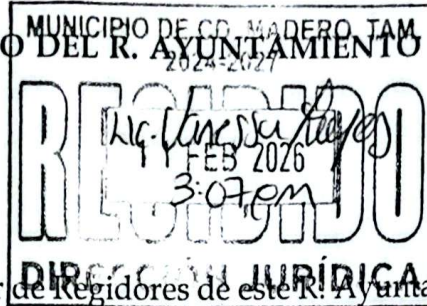 MUNICIPIO DE CD. MADERO, TAM
O DEL R. AYUNTAMIENTO
2024-2027
RECIBIDO
Lic. Vanessa Reyes
11 FEB 2026
3:07pm
DIRECCIÓN JURÍDICA
de Regidores de este R. Ayunta